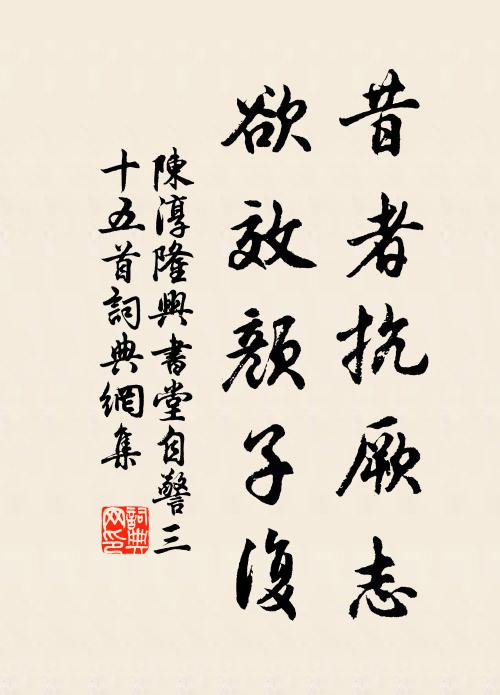 昔者抗厥志
欲效顏子復
陳淳隆興書堂自警三
十五首詞典網集
詞典
网印